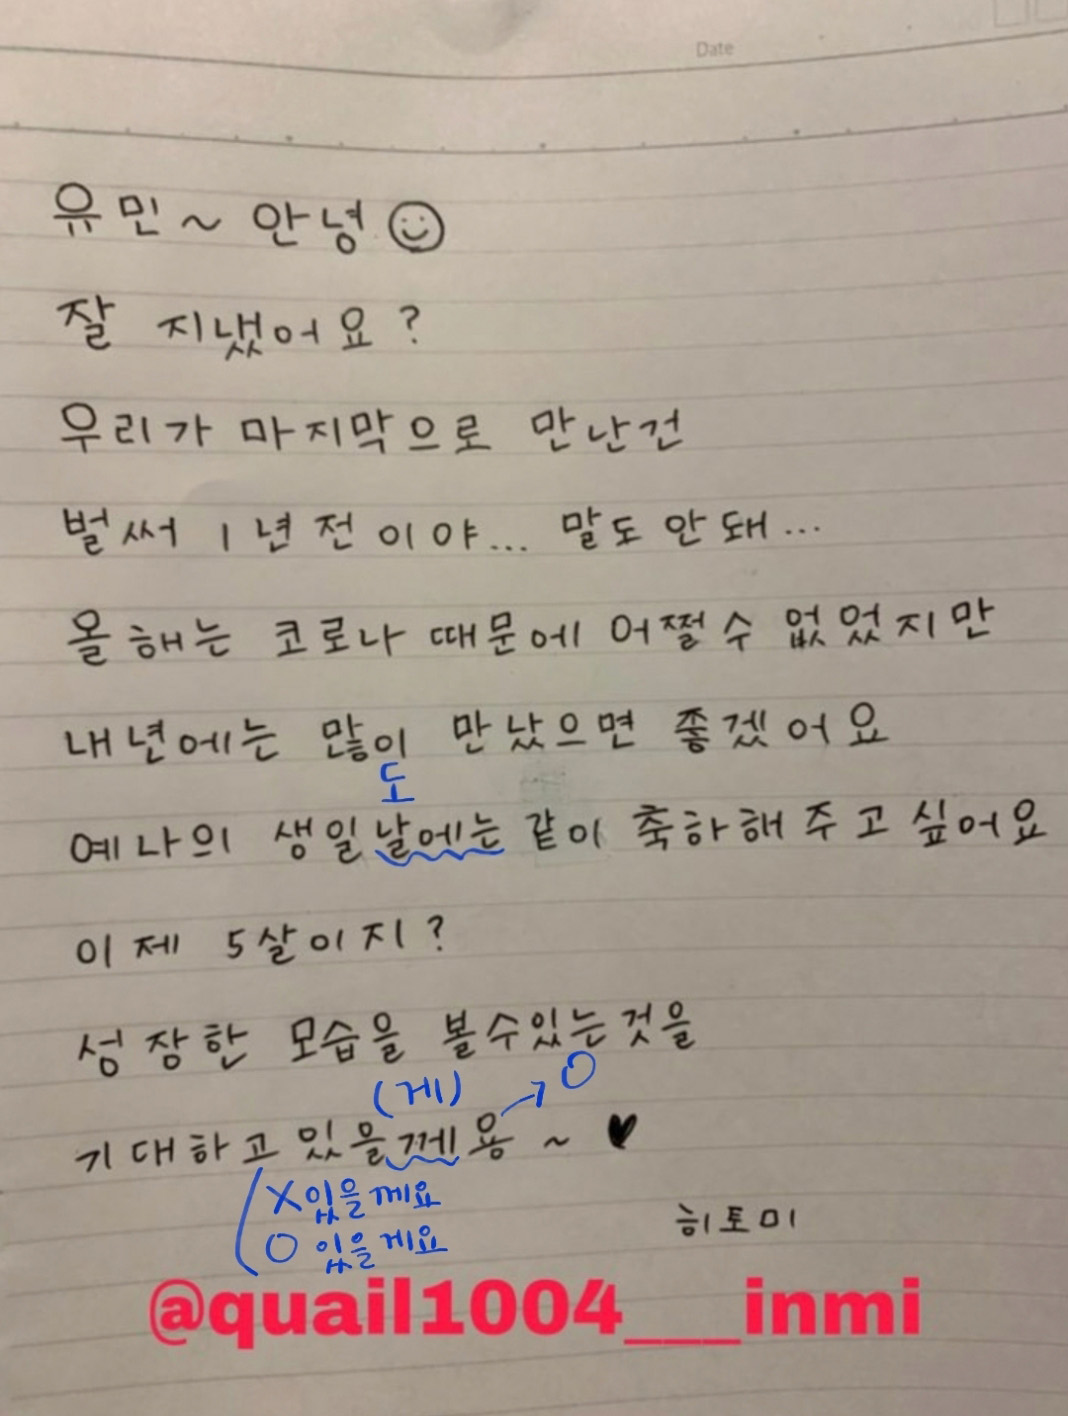 Date
유민~ 안녕
잘 지냈어요?
우리가 마지막으로 만난건
벌써 1년전이야... 말도안돼...
올해는 코로나 때문에 어쩔수 없었지만
내년에는 많이 만났으면 좋겠어요
도
예나의 생일날에는 같이 축하해주고싶어요
이제 5살이지?
성장한 모습을 볼수있는것을
(게) O
기대하고있을께용~ ♥
X있을께요
O 있을게요
히토미
@quail1004___inmi